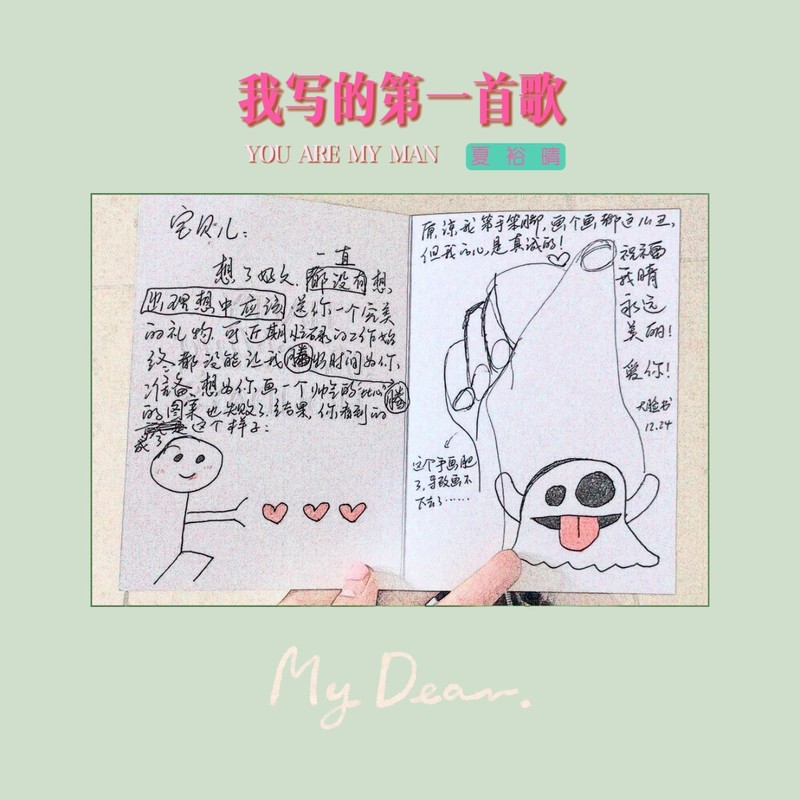 我写的第一首歌
YOU ARE MY MAN
夏裕晴
宝贝儿：
一直
想了好久，都没有想
出理想中应该送你一个完美
的礼物，可近期忙碌的工作始
终都没能让我腾出时间为你
准备，想为你画一个帅气的"比心"
的图案也失败了，结果，你看到的
这个样子：
原谅我笨手笨脚，画个画都这么丑，
但我的心，是真诚的！
祝福
我晴
永远
美丽！
爱你！
大脸书
12.24
这个手画肥
了，导致画不
下去了……
My Dear.